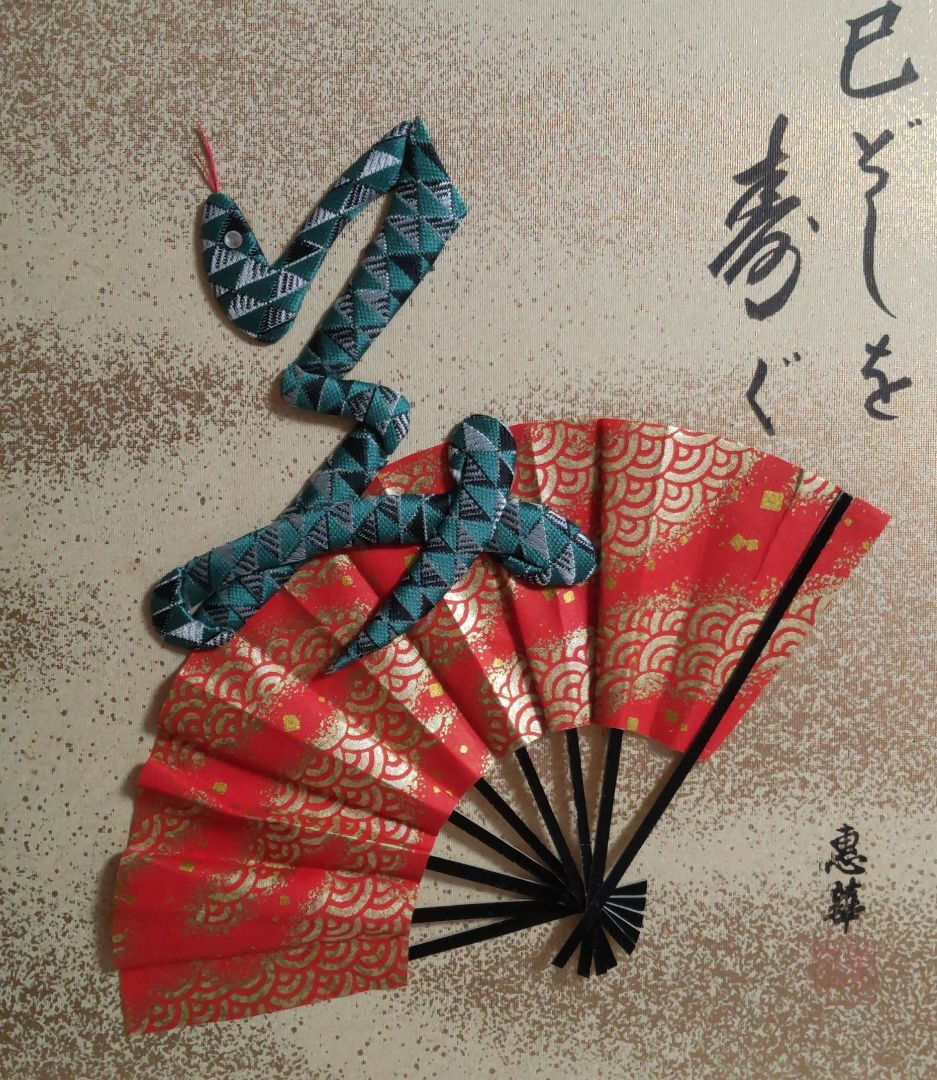 巳どしを
寿ぐ
惠華